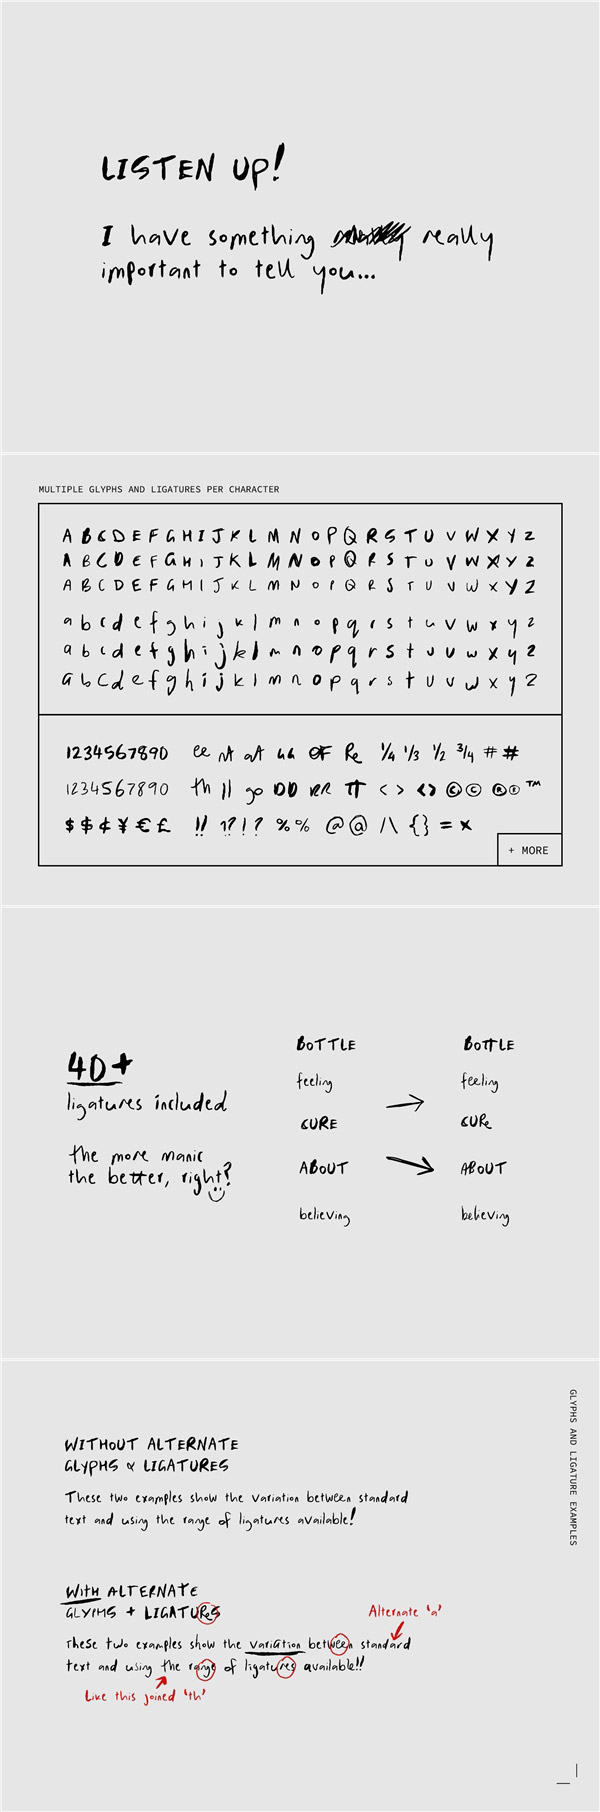 LISTEN UP!
I have something really
important to tell you...
MULTIPLE GLYPHS AND LIGATURES PER CHARACTER
A B C D E F G H I J K L M N O P Q R S T U V W X Y Z
A B C D E F G H I J K L M N O P Q R S T U V W X Y Z
A B C D E F G H I J K L M N O P Q R S T U V W X Y Z
a b c d e f g h i j k l m n o p q r s t u v w x y z
a b c d e f g h i j k l m n o p q r s t u v w x y z
a b c d e f g h i j k l m n o p q r s t u v w x y z
1234567890 ee rt at GG OF Re 1/4 1/3 1/2 3/4 # #
1234567890 th ll go DD RR TT < > < > © © ® ® ™
$ $ ¢ ¥ € £ !! !? ! ? % % @ @ / \ { } = x
+ MORE
40+
ligatures included
the more manic
the better, right?
BOTTLE BOTTLE
feeling feeling
CURE CURe
ABOUT ABOUT
believing believing
GLYPHS AND LIGATURE EXAMPLES
WITHOUT ALTERNATE
GLYPHS & LIGATURES
These two examples show the variation between standard
text and using the range of ligatures available!
WITH ALTERNATE
GLYPHS + LIGATUReS
Alternate 'a'
These two examples show the variation between standard
text and using the range of ligatures available!!
Like this joined 'th'